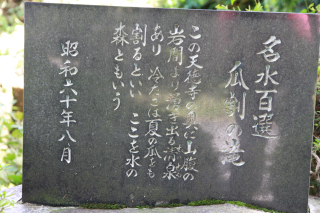 名水百選
瓜割の滝
この天徳寺の奥に山腹の
岩間より湧き出る清泉
あり 冷たさは夏の瓜をも
割るといい ここを水の
森ともいう
昭和六十年八月